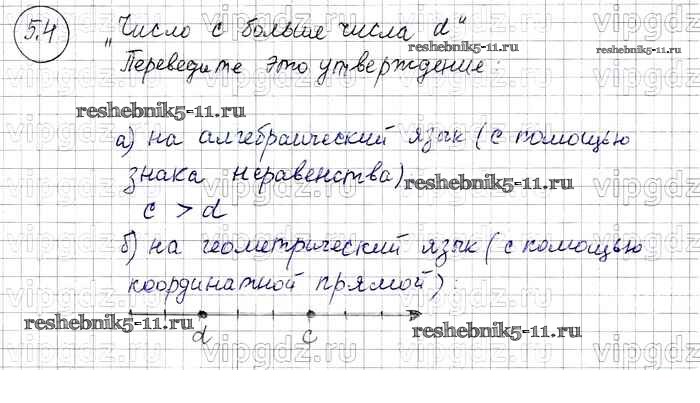 5.4
„Число c больше числа d“
Переведите это утверждение:
reshebnik5-11.ru
reshebnik5-11.ru
а) на алгебраический язык (с помощью
знака неравенства)
reshebnik5-11.ru
c > d
б) на геометрический язык (с помощью
координатной прямой):
reshebnik5-11.ru
reshebnik5-11.ru
d c
vipgdz.ru